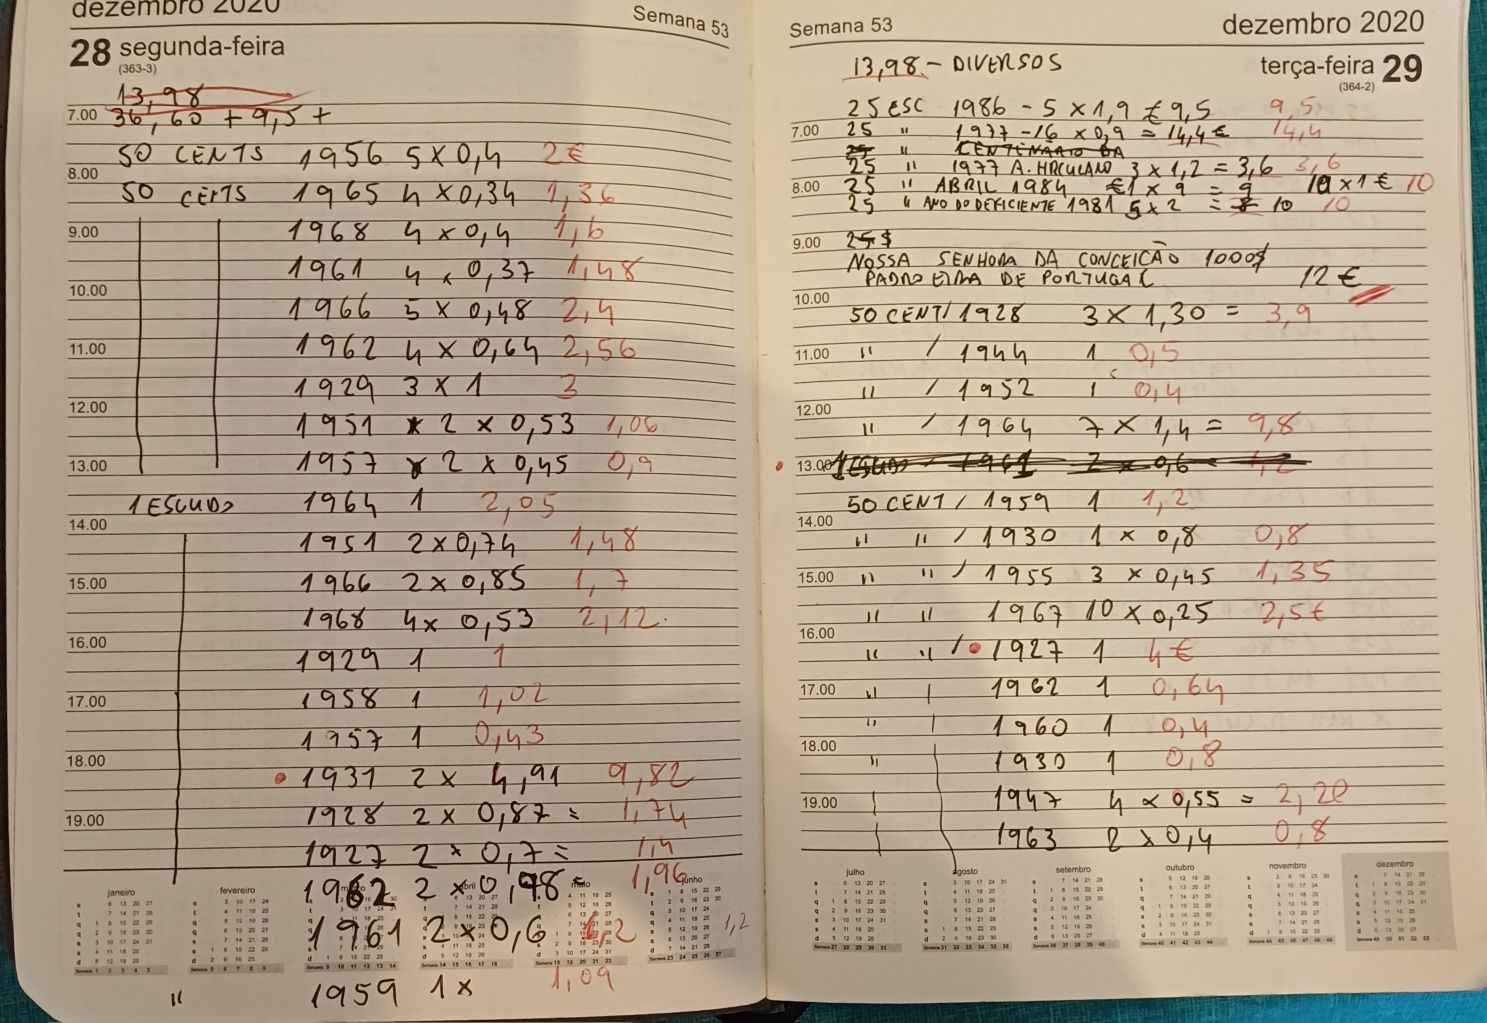 dezembro 2020
Semana 53
28 segunda-feira
(363-3)
13,98
7.00 36,60 + 9,5 +
50 CENTS 1956 5 x 0,4 2€
8.00
50 CENTS 1965 4 x 0,34 1,36
9.00 1968 4 x 0,4 1,6
1961 4 x 0,37 1,48
10.00
1966 5 x 0,48 2,4
11.00 1962 4 x 0,64 2,56
1929 3 x 1 3
12.00
1951 x 2 x 0,53 1,06
13.00 1957 x 2 x 0,45 0,9
1 ESCUDO 1964 1 2,05
14.00
1951 2 x 0,74 1,48
15.00 1966 2 x 0,85 1,7
1968 4 x 0,53 2,12
16.00
1929 1 1
17.00 1958 1 1,02
1957 1 0,43
18.00
1931 2 x 4,91 9,82
19.00 1928 2 x 0,87 = 1,74
1927 2 x 0,7 = 1,4
1962 2 x 0,98 = 1,96
1961 2 x 0,6 1,2 1,2
" 1959 1 x 1,09
janeiro fevereiro março abril maio junho
Semana 53
dezembro 2020
terça-feira 29
(364-2)
13,98 - DIVERSOS
25 ESC 1986 - 5 x 1,9 € 9,5 9,5
7.00 25 " 1977 - 16 x 0,9 = 14,4 € 14,4
25 " CENTENARIO DA
25 " 1977 A. HRCULANO 3 x 1,2 = 3,6 3,6
8.00 25 " ABRIL 1984 €1 x 9 = 9 10 x 1 € 10
25 " ANO DO DEFICIENTE 1981 5 x 2 = 10 10
9.00 25 $
NOSSA SENHORA DA CONCEIÇÃO 1000$
PADROEIRA DE PORTUGAL 12 €
10.00
50 CENT / 1928 3 x 1,30 = 3,9
11.00 " / 1944 1 0,5
" / 1952 1 0,4
12.00
" / 1964 7 x 1,4 = 9,8
13.00 1 ESCUDO / 1961 2 x 0,6 = 1,2
50 CENT / 1959 1 1,2
14.00
" " / 1930 1 x 0,8 0,8
15.00 " " / 1955 3 x 0,45 1,35
" " 1967 10 x 0,25 2,5€
16.00
" " / 1927 1 4€
17.00 " 1962 1 0,64
" 1960 1 0,4
18.00
" 1930 1 0,8
19.00 1947 4 x 0,55 = 2,20
1963 2 x 0,4 0,8
julho agosto setembro outubro novembro dezembro